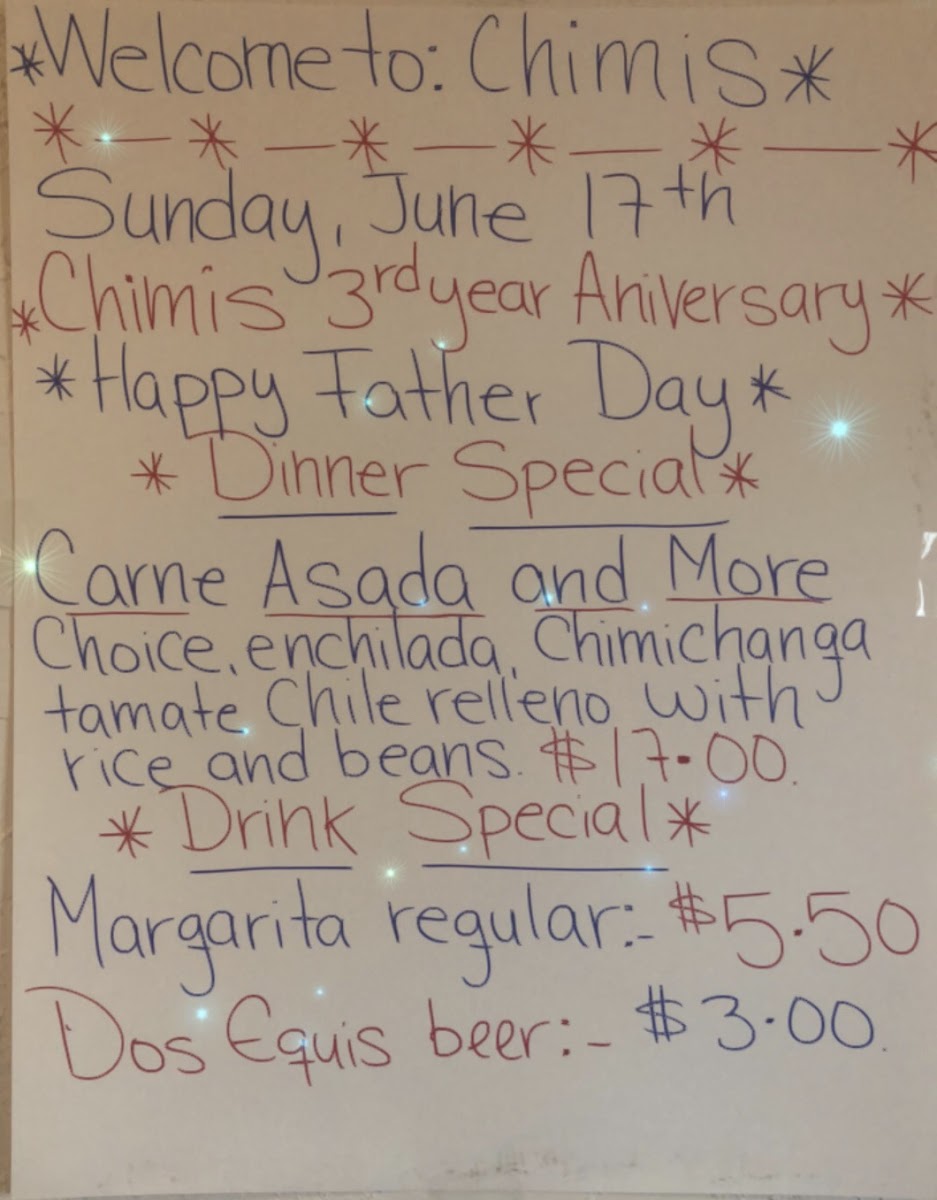 *Welcome to: Chimis*
* — * — * — * — * — *
Sunday, June 17th
*Chimis 3rd year Aniversary*
*Happy Father Day*
* Dinner Special*
Carne Asada and More
Choice, enchilada, Chimichanga
tamate, Chile relleno with
rice and beans. $17.00.
* Drink Special*
Margarita regular:- $5.50
Dos Equis beer:- $3.00.